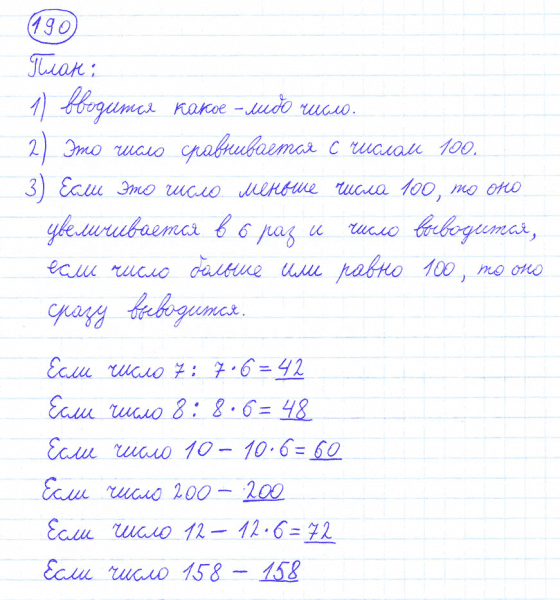 190
План:
1) Вводится какое-либо число.
2) Это число сравнивается с числом 100.
3) Если это число меньше числа 100, то оно
увеличивается в 6 раз и число выводится,
если число больше или равно 100, то оно
сразу выводится.
Если число 7: 7·6=42
Если число 8: 8·6=48
Если число 10 – 10·6=60
Если число 200 – 200
Если число 12 – 12·6=72
Если число 158 – 158